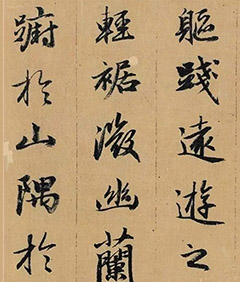 軀踐遠遊之
輕裾微幽蘭
躕於山隅於